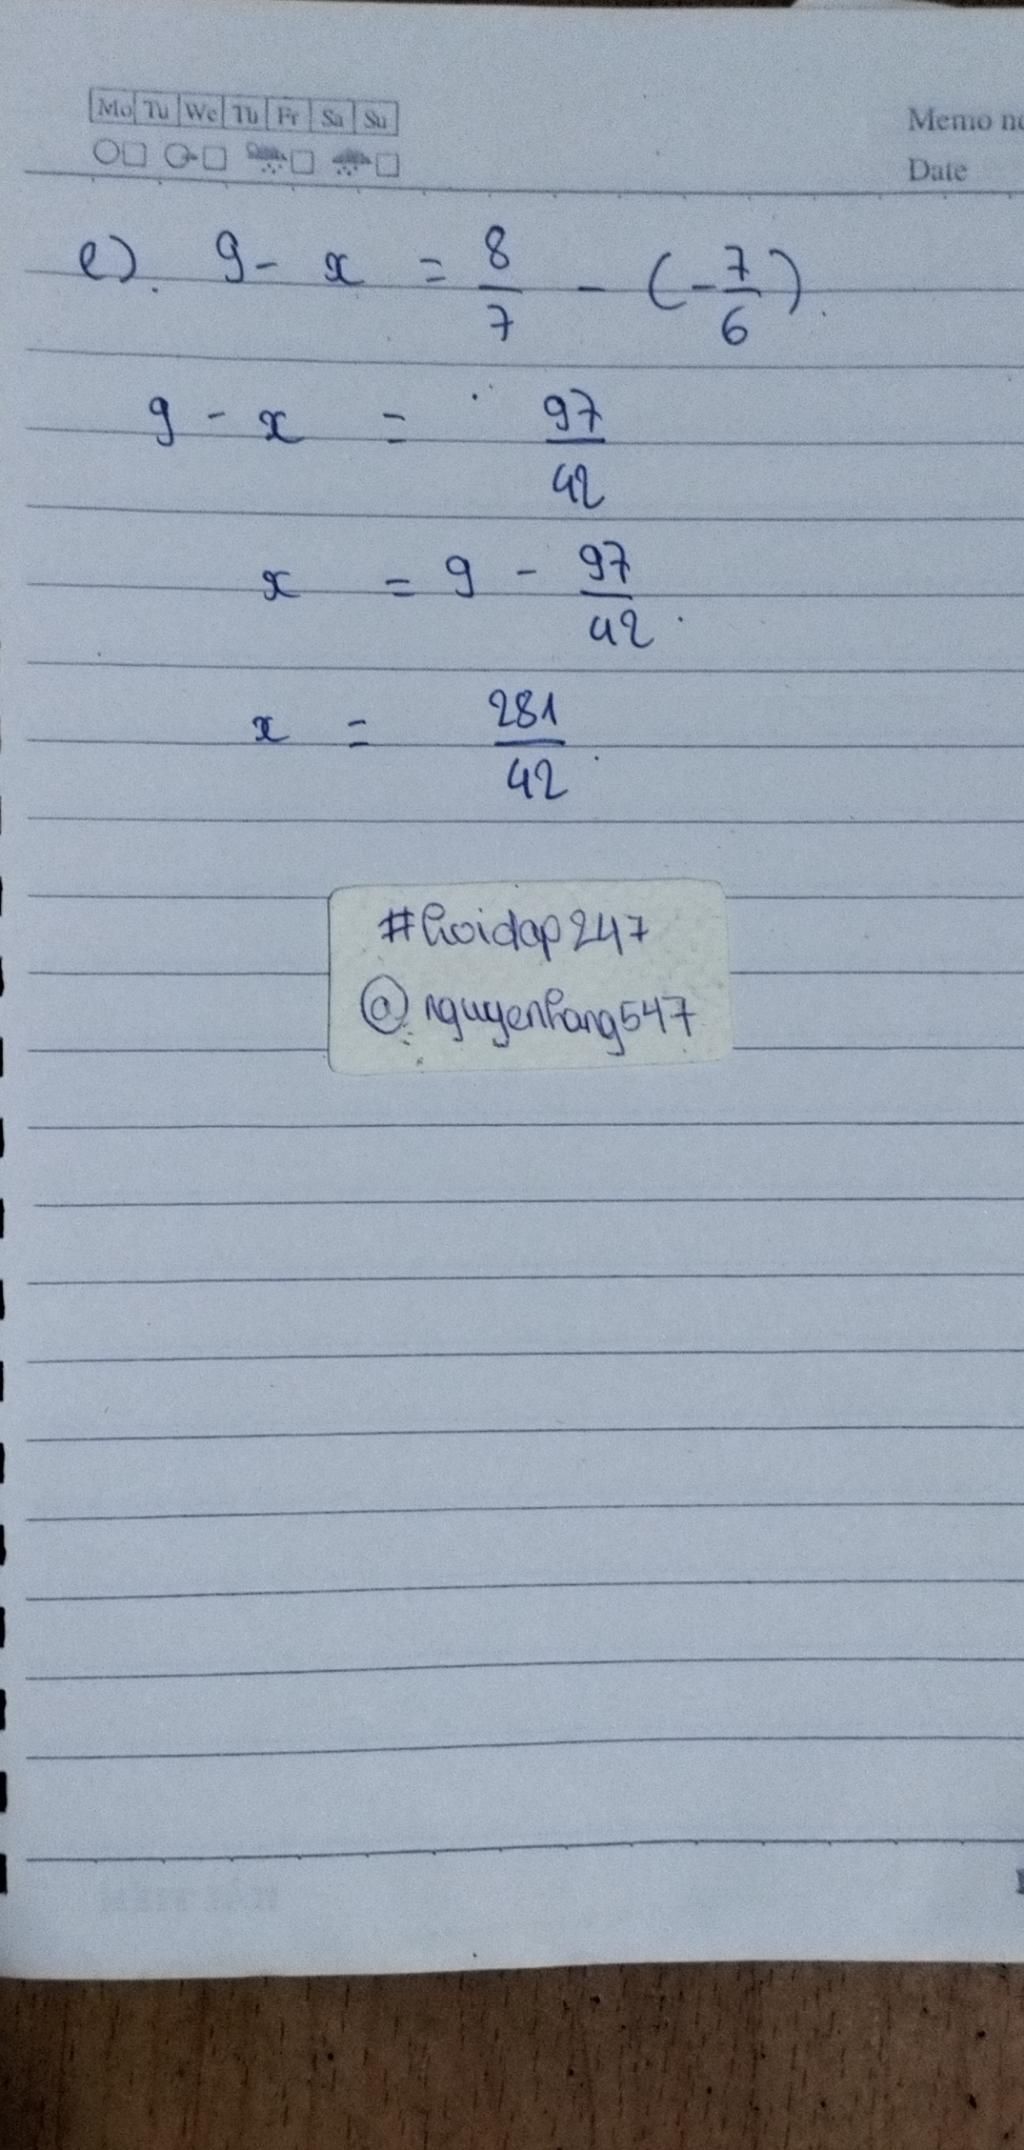 Mo Tu We Th Fr Sa Su
Memo no
Date
e). 9 - x = 8/7 - (-7/6).
9 - x = 97/42
x = 9 - 97/42.
x = 281/42.
#hoidap247
@nguyenhang547